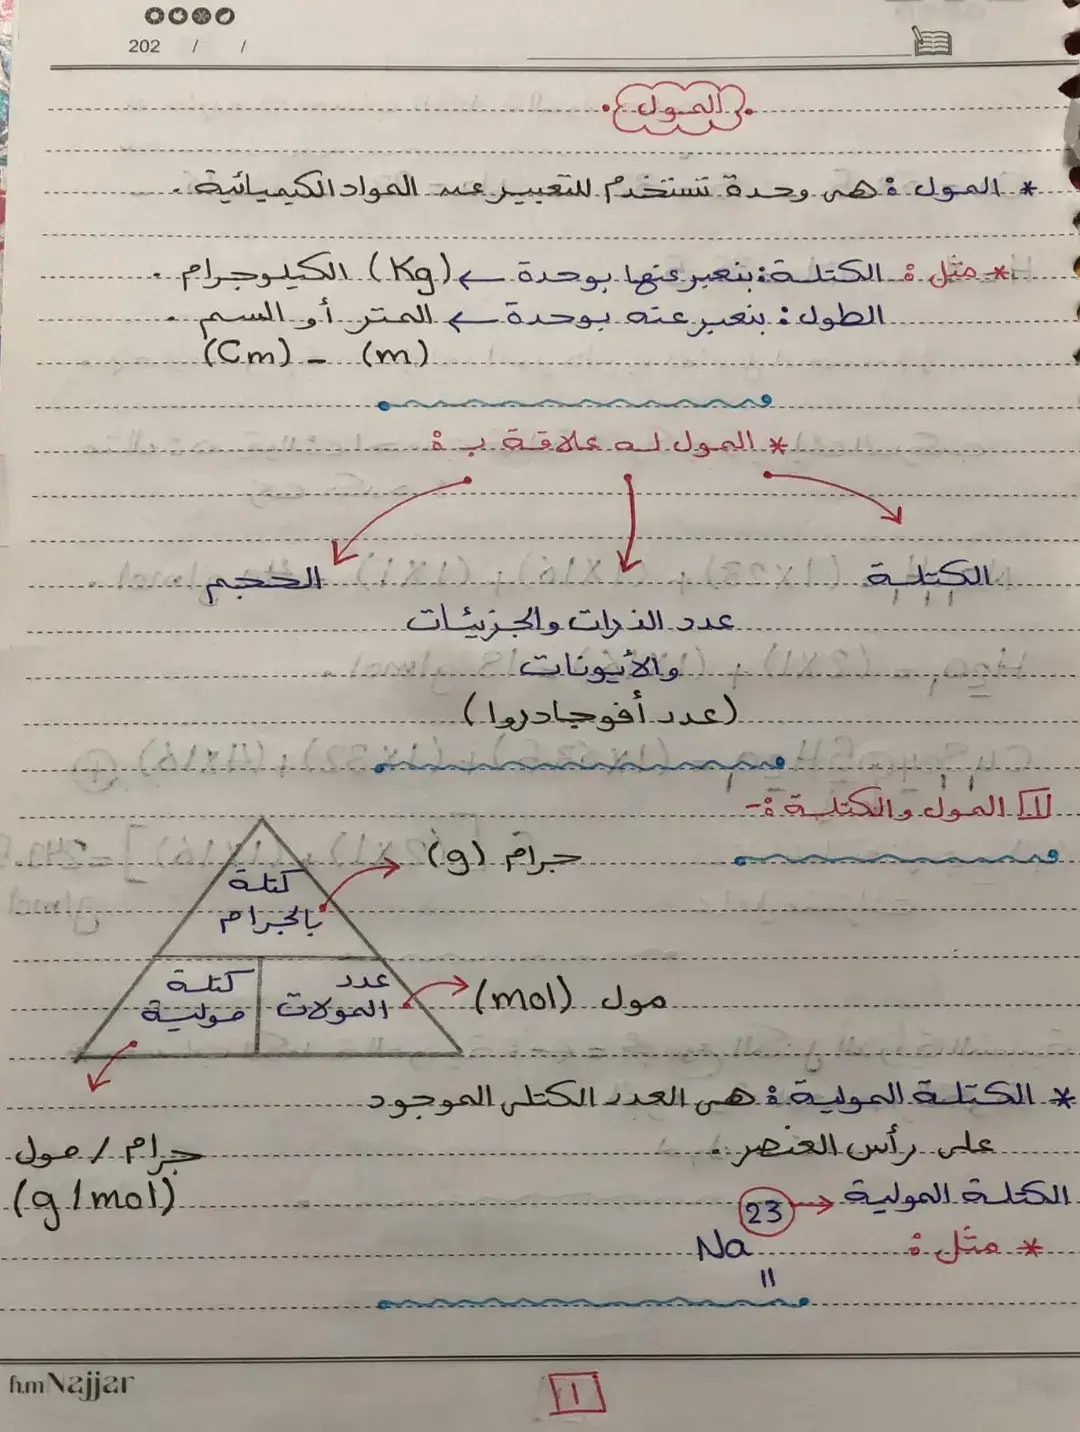 202 / /
المول
* المول : هى وحدة تستخدم للتعبير عن المواد الكيميائية .
* مثل : الكتلة : بنعبر عنها بوحدة ← (Kg) الكيلوجرام .
الطول : بنعبر عنه بوحدة ← المتر أو السم .
(m) - (Cm)
* المول له علاقة ب :
الكتلة
الحجم
عدد الذرات والجزيئات
والأيونات
(عدد أفوجادروا)
1 المول والكتلة :-
جرام (g)
كتلة
بالجرام
عدد
المولات
كتلة
مولية
مول (mol)
* الكتلة المولية : هى العدد الكتلى الموجود
على رأس العنصر .
جرام / مول
(g/mol)
الكتلة المولية → 23
* مثل :
Na
11
h.m Najjar
1